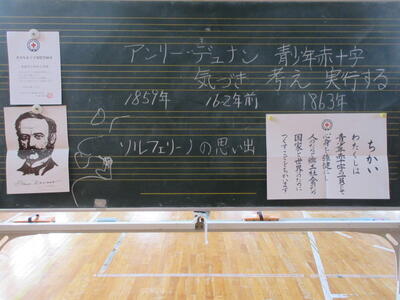 アンリー・デュナン 青少年赤十字
気づき 考え 実行する
1859年 162年前 1863年
ソルフェリーノの思い出
ちかい
わたくしは
青少年赤十字の一員として
心身を強健にし
人のためと郷土社会のため
国家と世界のために
つくすことをちかいます